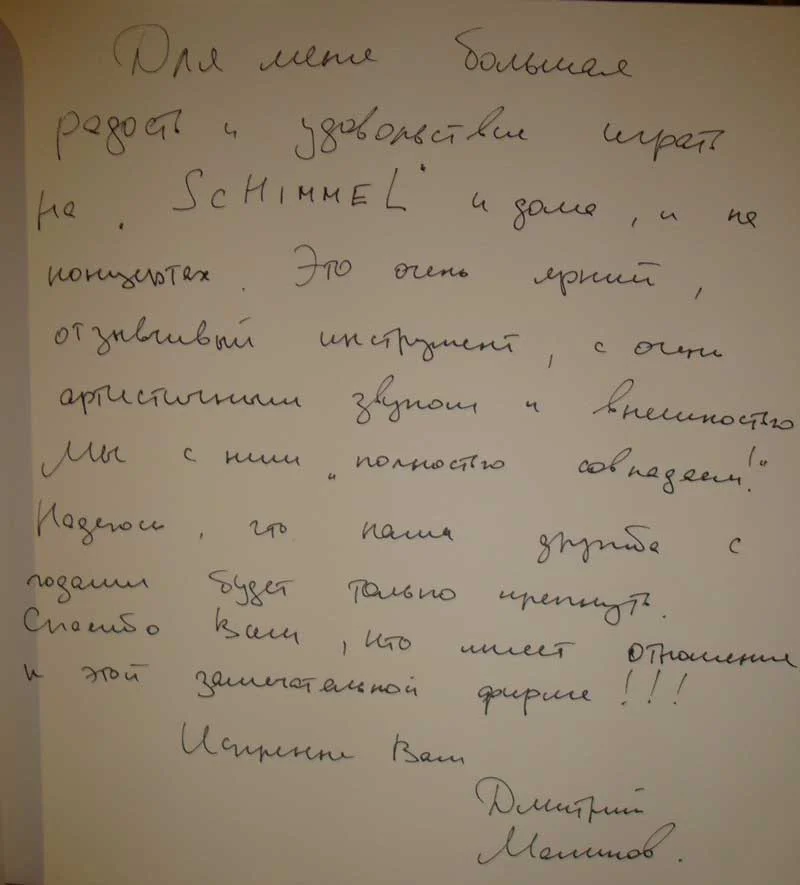 Для меня большая
радость и удовольствие играть
на „SCHIMMEL“ и дома, и на
концертах. Это очень яркий,
отзывчивый инструмент, с очень
артистичным звуком и внешностью
Мы с ним „полностью совпадаем!“
Надеюсь, что наша дружба с
годами будет только крепнуть.
Спасибо Вам, кто имеет отношение
к этой замечательной фирме!!!
Искренне Ваш
Дмитрий
Маликов.